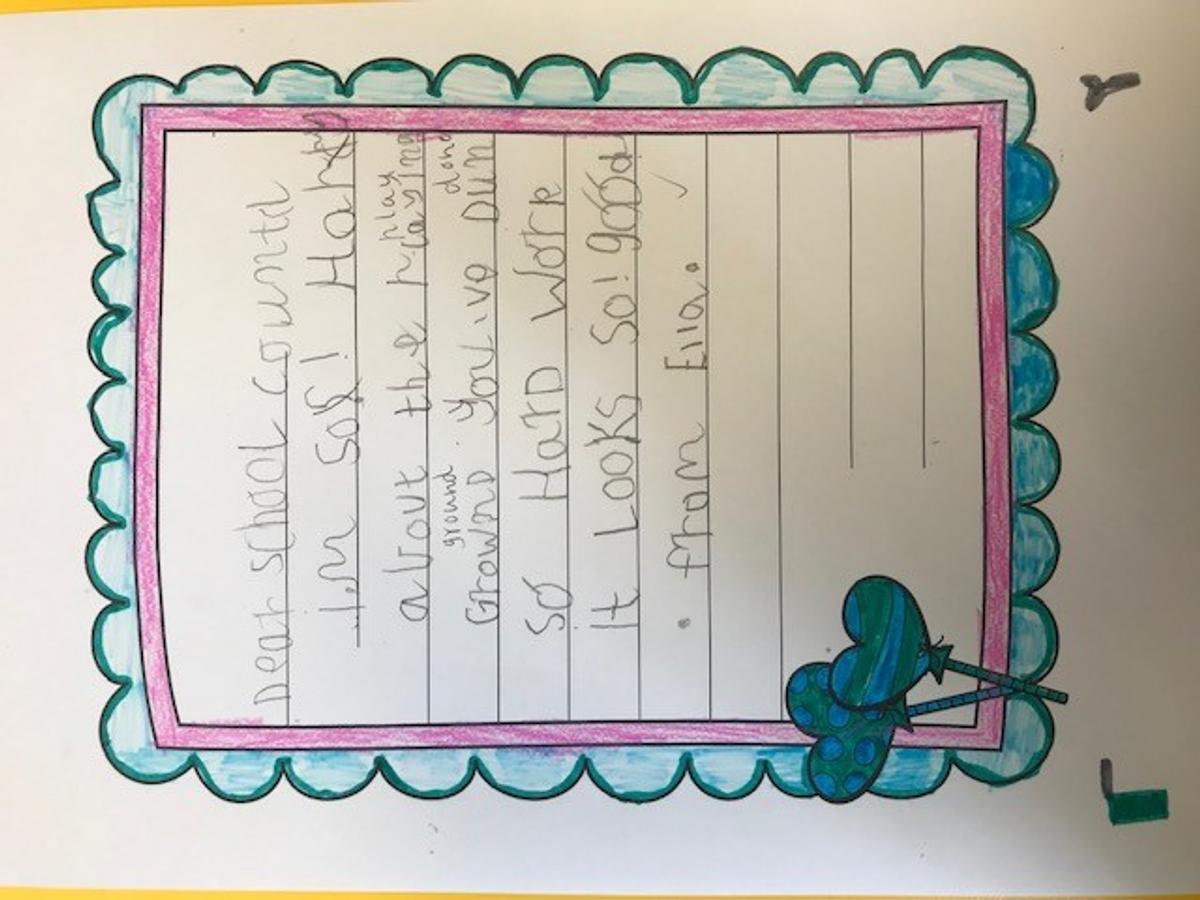 Dear School Council
I,m So! Happy
play
about the playing
ground done
Grownd. You,ve Dun
So Hard Work
It Looks So! good
. from Ella.